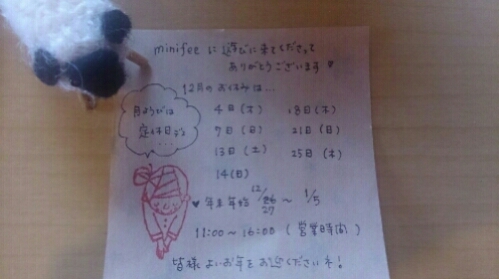 minifee に 遊びに来てくださって
ありがとうございます♥
12月のお休みは…
月ようびは
定休日です
4日(木) 18日(木)
7日(日) 21日(日)
13日(土) 25日(木)
14(日)
♥ 年末年始 12/27 〜 1/5
11:00〜16:00 (営業時間)
皆様 よいお年を お迎えくださいネ!